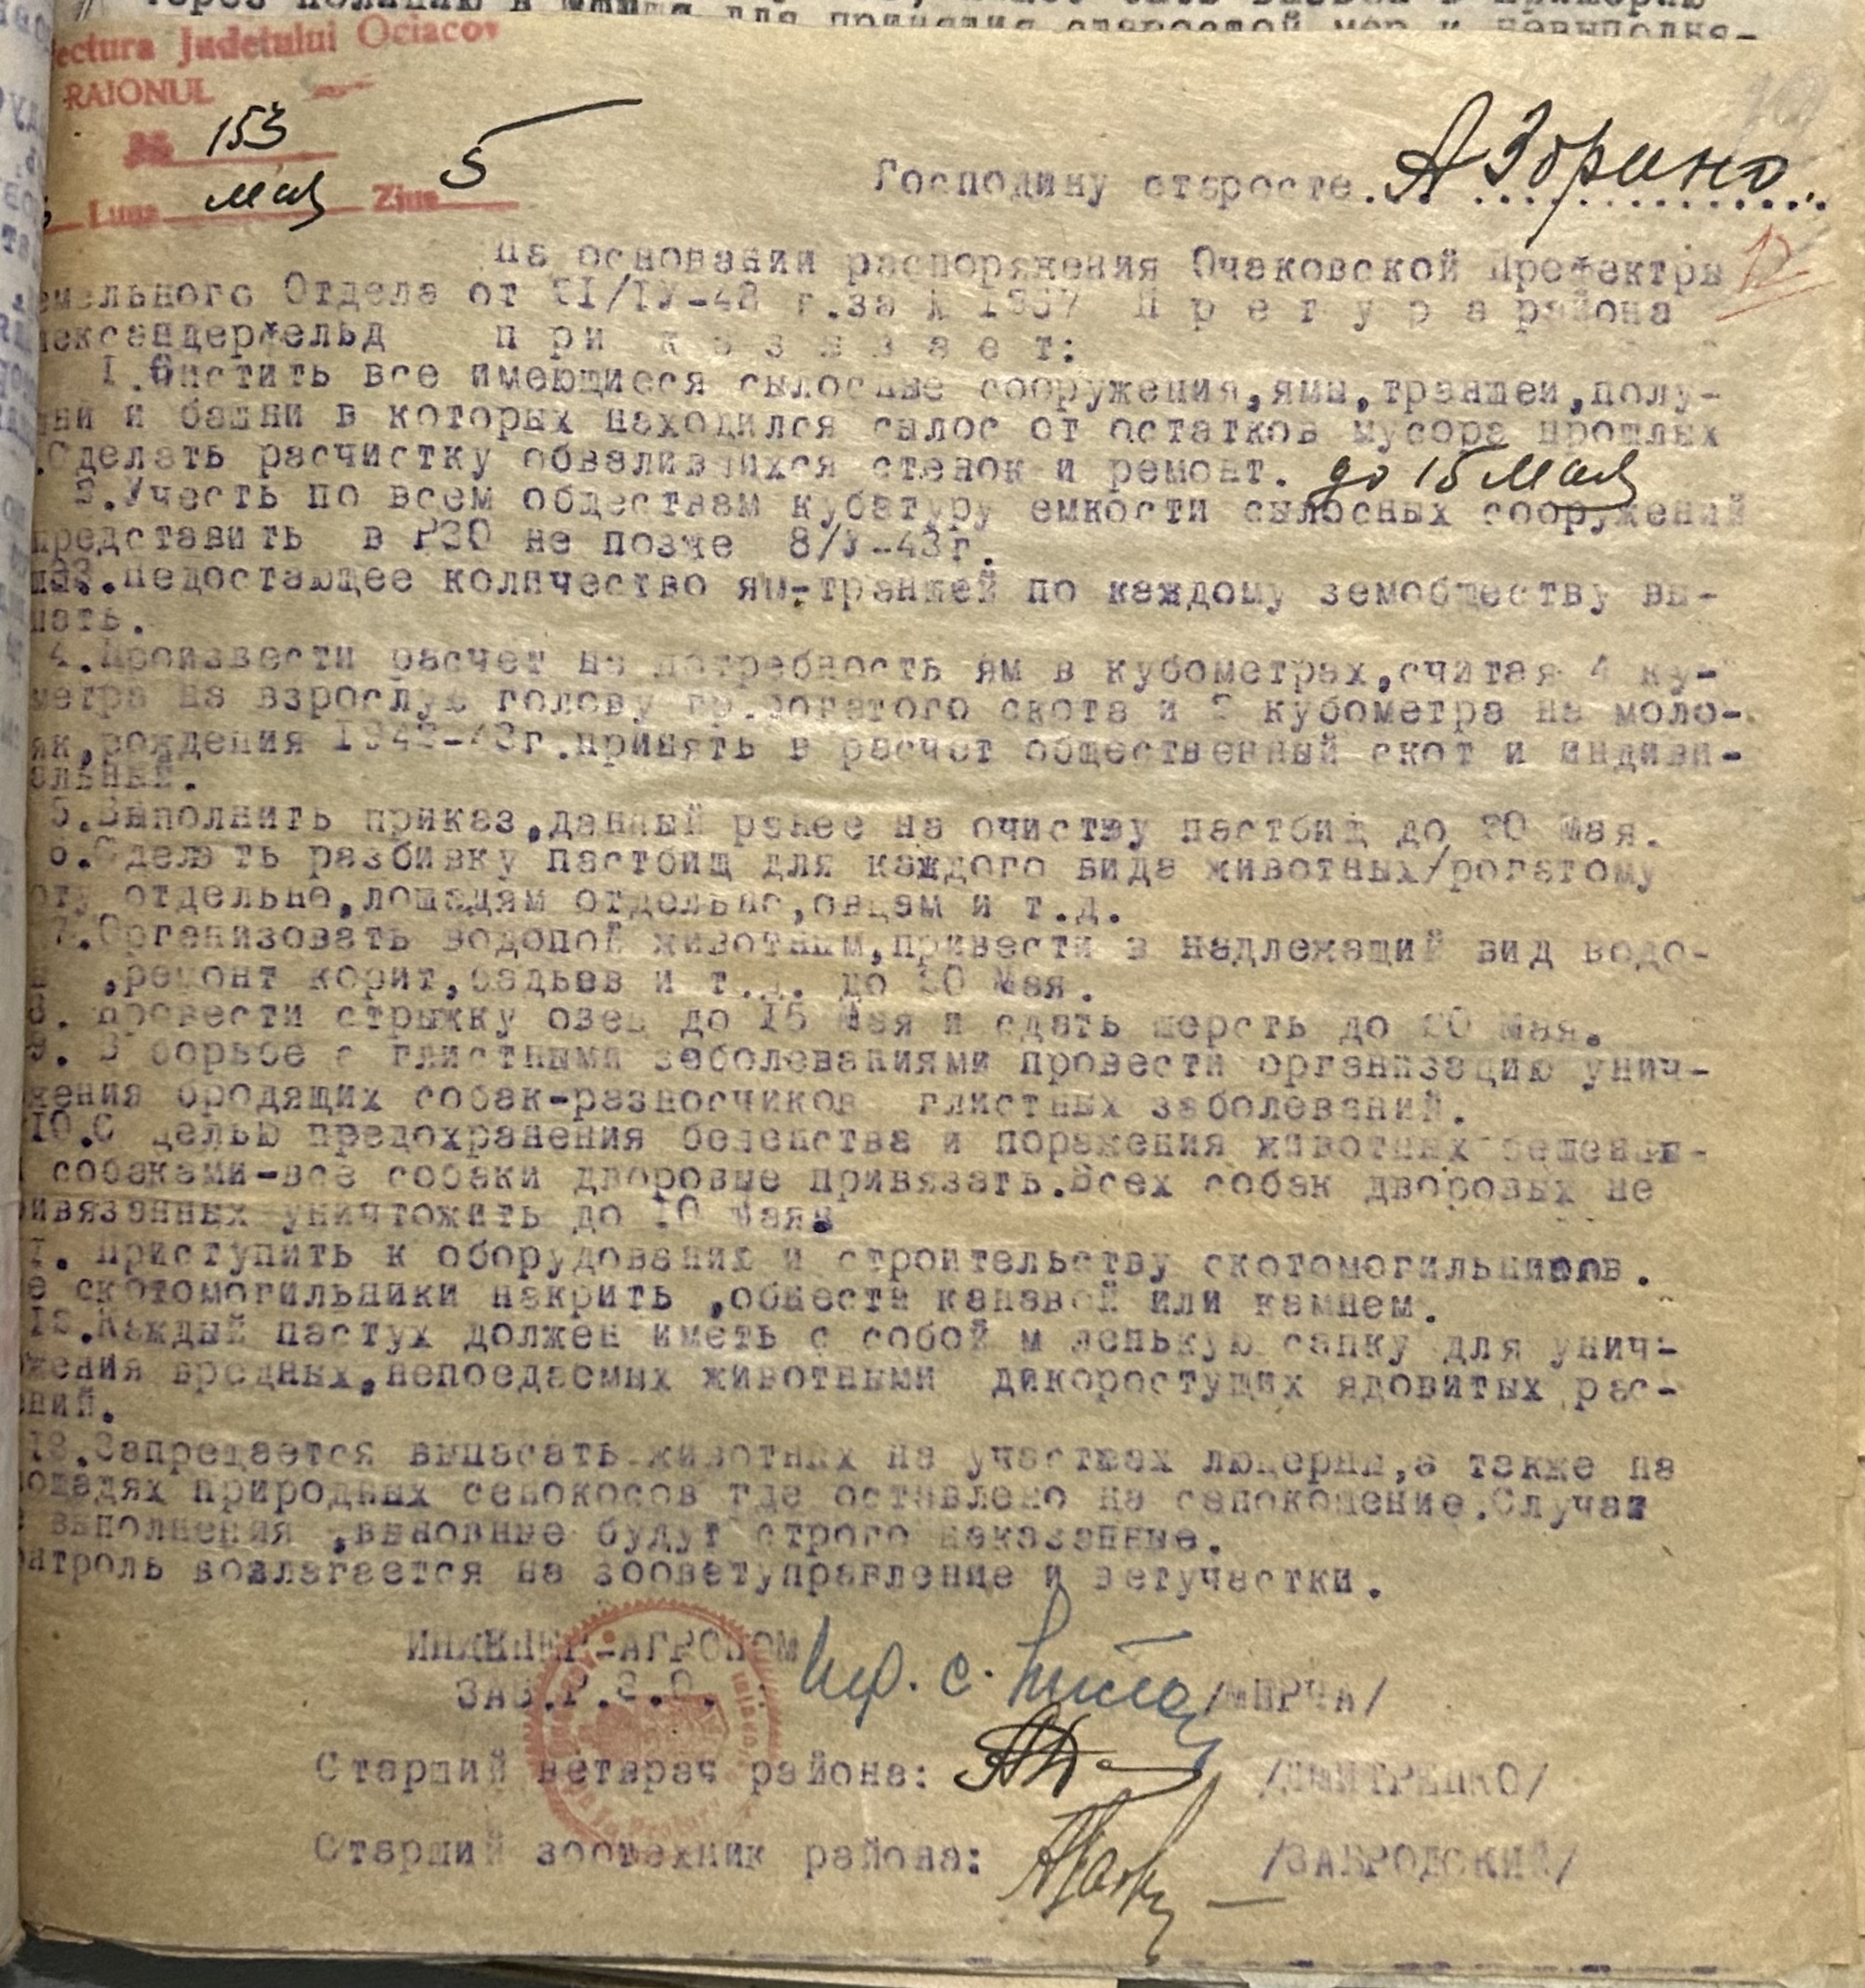 для принятия старостой мер к невыполня-
ectura Judetului Ociacov
RAIONUL
№ 153
Luna Мая Ziua 5
Господину старосте
На основании распоряжения Очаковской Префектры
12
емельного Отдела от г.за № П р е т у р а района
лександерфельд п р и к а з ы в а е т:
1. все имеющиеся сылосные сооружения,ямы,траншеи,полу-
шни и башни в которых находился сылос от остатков мусора прошлых
.Сделать расчистку обвалившихся стенок и ремонт. до 15 Мая
2.Учесть по всем обществам кубатуру емкости сылосных сооружений
представить в РЗО не позже 8/У-43г.
3.Недостающее количество ям-траншей по каждому земобществу вы-
пать.
4.Произвести расчет на потребность ям в кубометрах,считая 4 ку-
метра на взрослую голову кр.рогатого скота и 2 кубометра на моло-
як,рождения 1942-43г.принять в расчет общественный скот и индиви-
ельный.
5.Выполнить приказ,данный ранее на очистку пастбищ до 20 Мая.
6.Сделать разбивку пастбищ для каждого вида животных/рогатому
оту отдельно,лошадям отдельно,овцам и т.д.
7.Организовать водопой животным,привести в надлежащий вид водо-
,ремонт корит,бадьев и т.д. до 20 Мая.
8. Провести стрыжку овец до 15 Мая и сдать шерсть до 20 Мая.
9. В борьбе с глистными заболеваниями провести организацию унич-
жения бродящих собак-разносчиков глистных заболеваний.
10.С целью предохранения бешенства и поражения животных бешены-
и собаками-все собаки дворовые привязать.Всех собак дворовых не
ивязанных уничтожить до 10 Мая.
I. Приступить к оборудованию и строительству скотомогильников.
е скотомогильники накрить ,обнести канавой или камнем.
12.Каждый пастух должен иметь с собой м ленькую сапку для унич-
жения вредных,непоедаемых животными дикоростущих ядовитых рас-
ений.
13.Запрещается выпасать животных на участках люцерны,а также на
ощадях природных сенокосов где оставлено на сенокошение.Случаи
е выполнения ,виновные будут строго наказанные.
онтроль возлагается на зооветуправление и ветучастки.
ИНЖЕНЕР-АГРОНОМ
ЗАВ.Р.З.О. /МИРЧА/
Старший ветврач района: /ДМИТРЕНКО/
Старший зоотехник района: /ЗАБРОДСКИЙ/